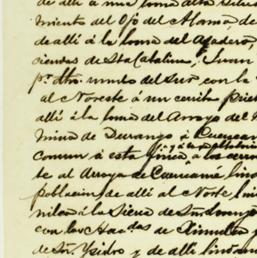 de allí á una loma alta
miento del Ojo del Alamo, de
de allí á la loma del Agadero,
ciendas de Sta Catalina, Juan
pr. dho. rumbo del Sur con la
al Noreste á un cerrito
allí á la loma del Arroyo del
Mina de Durango á Cuencamé
comun á esta finca y á
te al Arroyo de Cuencamé
poblacion, de allí al Norte
á la Sierra de Sto. Domingo
con las Hac.das de
de Sn. Ysidro y de allí lindan